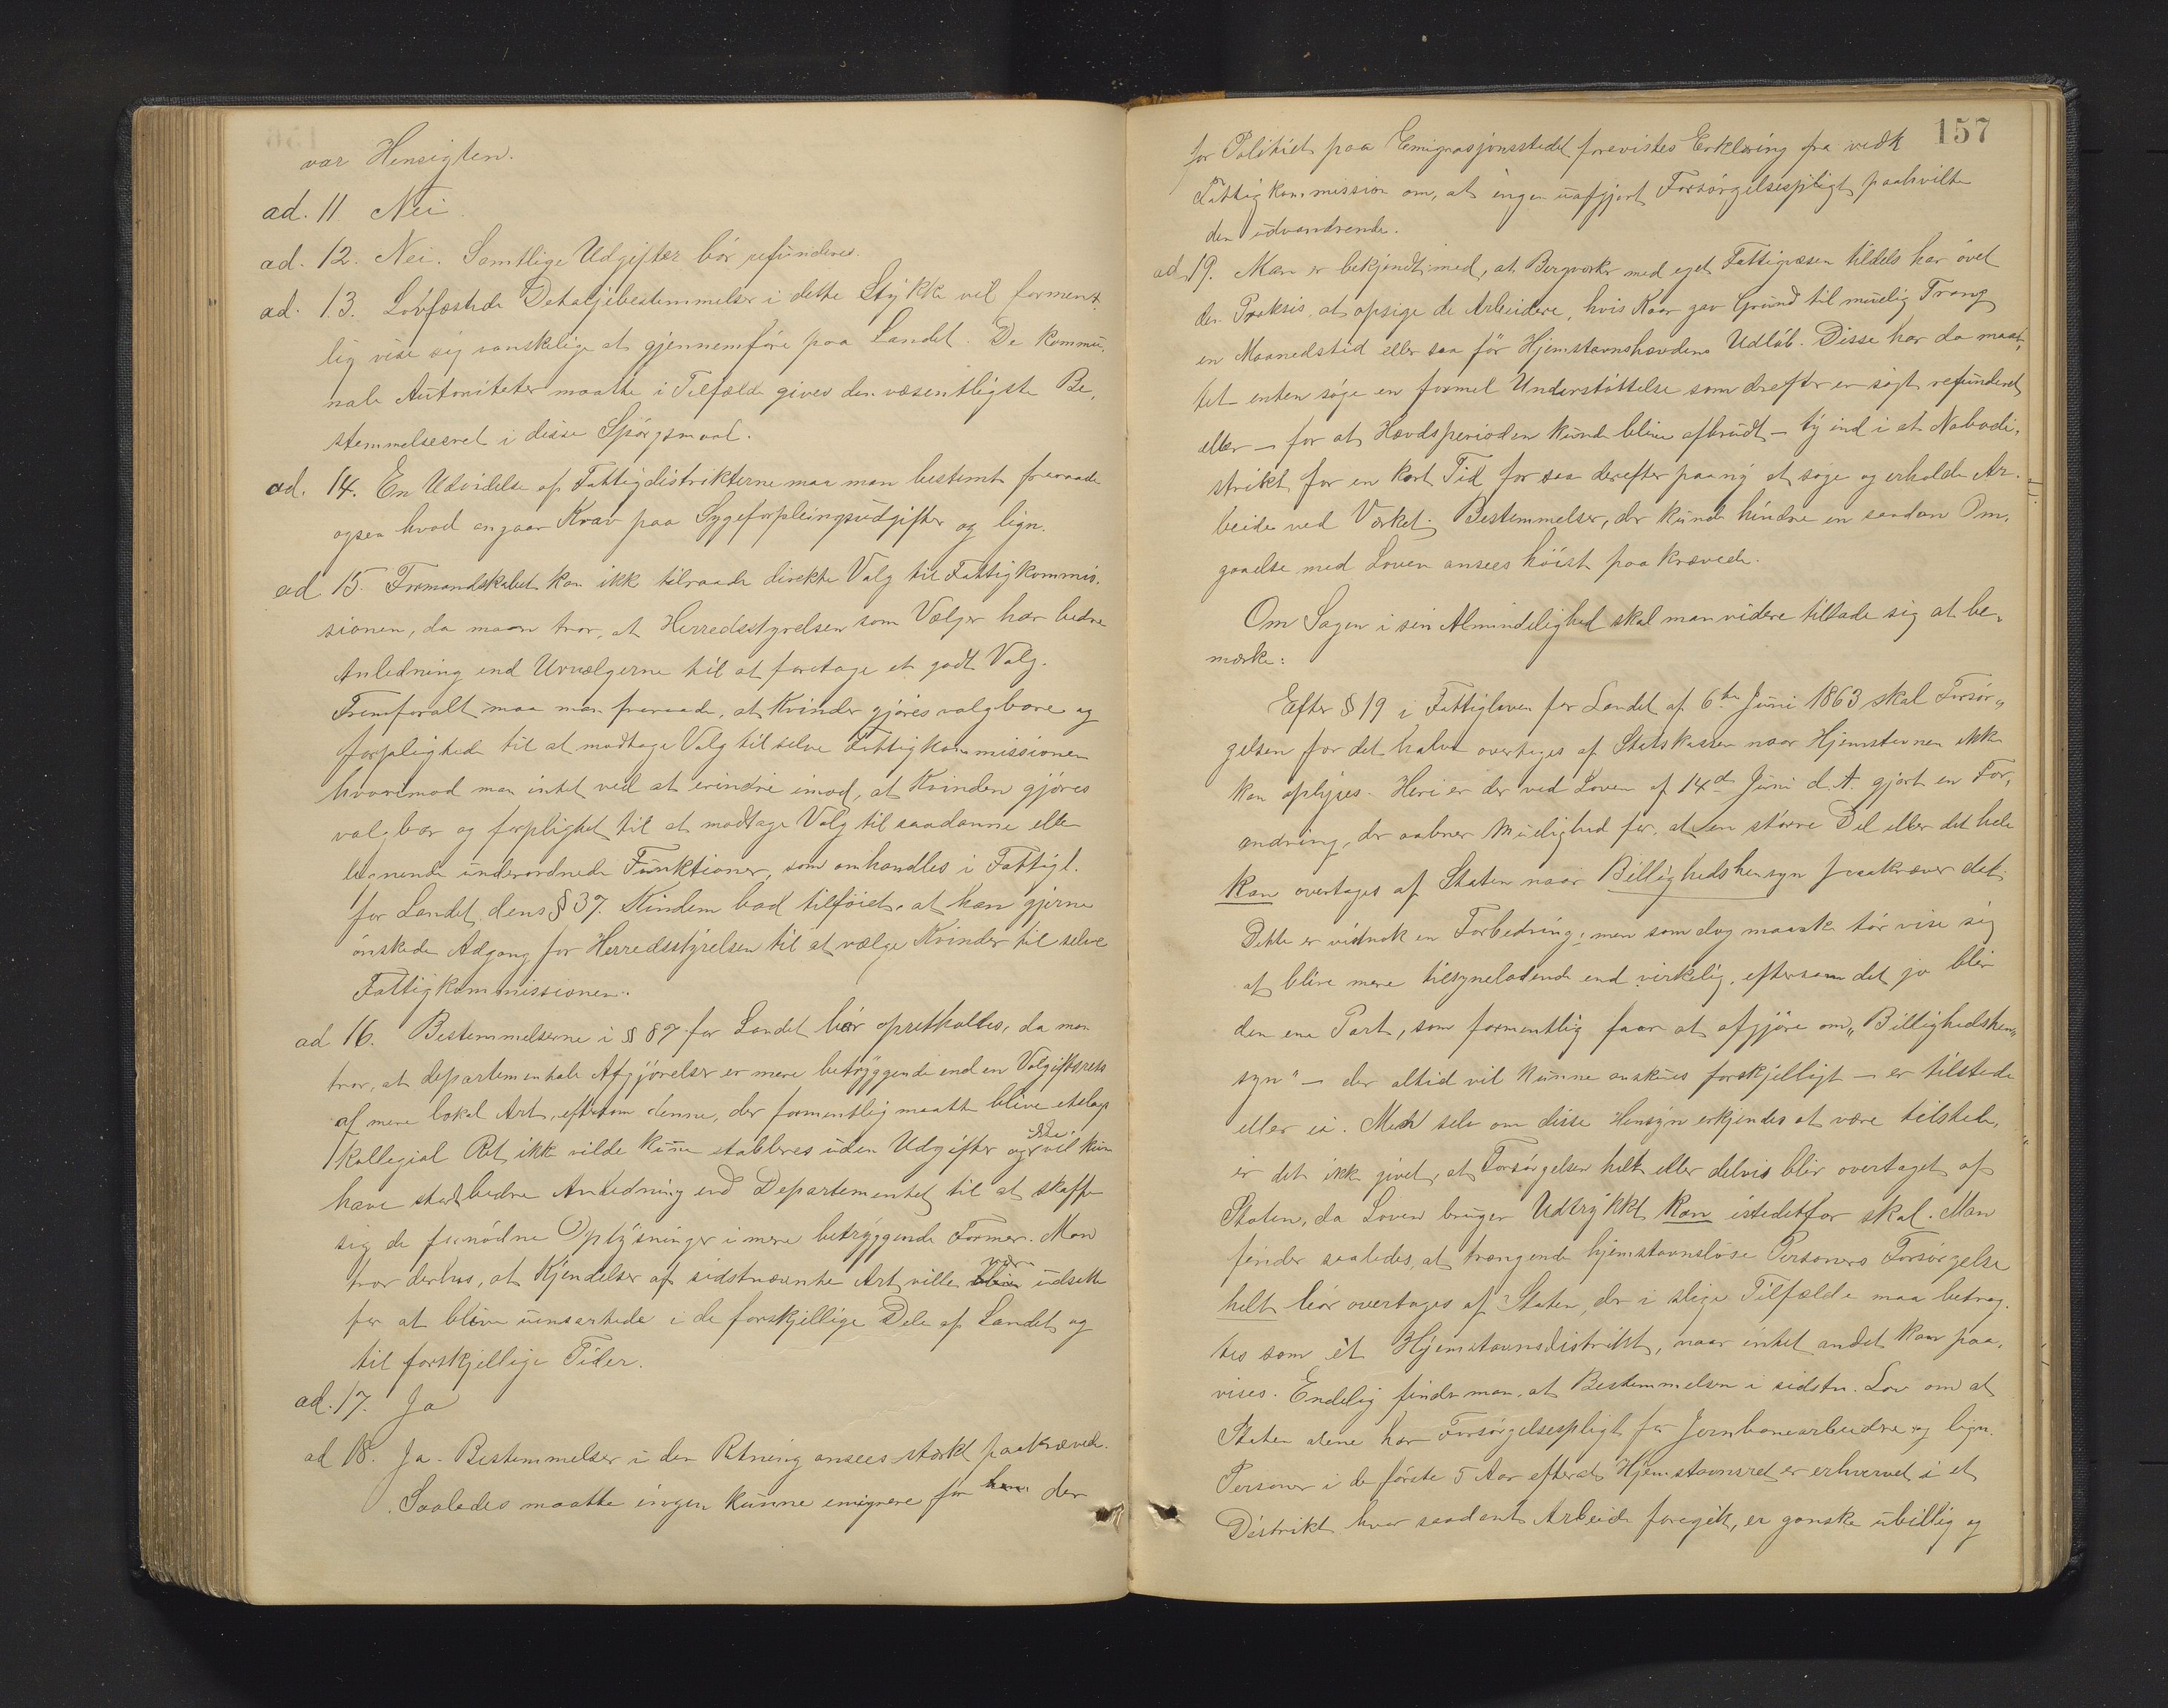 var Hensigten.
ad. 11 Nei.
ad. 12. Nei. Samtlige Udgifter bör refunderes.
ad. 13. Lovfæstede Detaljebestemmelser i dette Stykke vil forment,
lig vise sig vanskelige at gjennemføre paa Landet. De kommu,
nale Autoriteter maatte i Tilfælde gives den væsentligste Be,
stemmelsesret i disse Spörgsmaal.
ad. 14. En Udvidelse af Fattigdistrikterne maa man bestemt fraraade
ogsaa hvad angaar Krav paa Sygeforpleiningsudgifter og lign.
ad 15. Formandskabet kan ikke tilraade direkte Valg til Fattigkommis.
sionen, da man tror, at Herredsstyrelsen som Vælger har bedre
Anledning end Urvælgerne til at foretage et godt Valg.
Fremforalt maa man fraraade, at Kvinder gjöres valgbare og
forpligtede til at modtage Valg til selve Fattigkommissionen
hvorimod man intet ved at erindre imod, at Kvinden gjöres
valgbar og forpligtet til at modtage Valg til saadanne eller
lignende underordnede Funktioner, som omhandles i Fattigl.
for Landet dens § 37. Kindem bad tilföiet, at han gjerne
önskede Adgang for Herredsstyrelsen til at vælge Kvinder til selve
Fattigkommissionen.
ad 16. Bestemmelserne i § 87 for Landet bör opretholdes, da man
tror, at departementale Afgjörelser er mere betryggende end en Voldgiftsrets
af mere lokal Art, eftersom denne, der formentlig maatte blive etslags
kollegial Ret ikke vilde kunne etableres uden Udgifter og ikke vil kun
have stort bedre Anledning end Departementet til at skaffe
sig de fornødne Oplysninger i mere betryggende Former. Man
tror derhos, at Kjendelser af sidstnævnte Art ville være udsatte
for at blive uensartede i de forskjellige Dele af Landet og
til forskjellige Tider.
ad. 17. Ja
ad 18. Ja. Bestemmelser i den Retning ansees stærkt paakrævede.
Saaledes maatte ingen kunne emigrere før der
157
for Politiet paa Emigrasjonsstedet forevistes Erklæring fra vedk
Fattigkommission om, at ingen uafgjort Forsörgelsespligt paahvilte
den udvandrende.
ad. 19. Man er bekjendt med, at Bergværker med eget Fattigvæsen tildels har övet
den Praksis, at opsige de Arbeidere, hvis Kaar gav Grund til muelig Trang
en Maanedstid eller saa för Hjemstavnshævdens Udlöb. Disse har da maat,
tet enten söge en formel Understöttelse som derefter er sögt refunderet
eller – for at Hævdsperioden kunde blive afbrudt – ty ind i et Nabodi,
strikt for en kort Tid for saa derefter paany at söge og erholde Ar.
beide ved Værket. Bestemmelser, der kunde hindre en saadan Om,
gaaelse med Loven ansees höist paakrævede.
Om Sagen i sin Almindelighed skal man videre tillade sig at be,
mærke:
Efter § 19 i Fattigloven for Landet af 6te Juni 1863 skal Forsör,,
gelsen for det halve overtages af Statskassen naar Hjemstavnen ikke
kan oplyses. Heri er der ved Loven af 14de Juni d. A. gjort en For,
andring, der aabner Muelighed for, at en större Del eller det hele
kan overtages af Staten naar Billighedshensyn paakræver det.
Dette er vistnok en Forbedring; men som dog maaske tör vise sig
at blive mere tilsyneladende end virkelig, eftersom det jo blir
den ene Part, som formentlig faar at afgjöre om „Billighedshen„
syn" – der altid vil kunne anskues forskjelligt – er tilstede
eller ei. Men selv om disse Hensyn erkjendes at være tilstede,
er det ikke givet, at Forsörgelsen helt eller delvis blir overtaget af
Staten, da Loven bruger Udtrykket kan istedetfor skal. Man
finder saaledes, at trængende hjemstavnslöse Personers Forsörgelse
helt bör overtages af Staten, der i slige Tilfælde maa betrag.
tes som et Hjemstavnsdistrikt, naar intet andet kan paa,
vises. Endelig finder man, at Bestemmelsen i sidstn. Lov om at
Staten alene har Forsörgelsespligt for Jernbanearbeidere og lign.
Personer i de förste 5 Aar efterat Hjemstavnsret er erhvervet i et
Distrikt hvor saadant Arbeide foregik, er ganske ubillig og